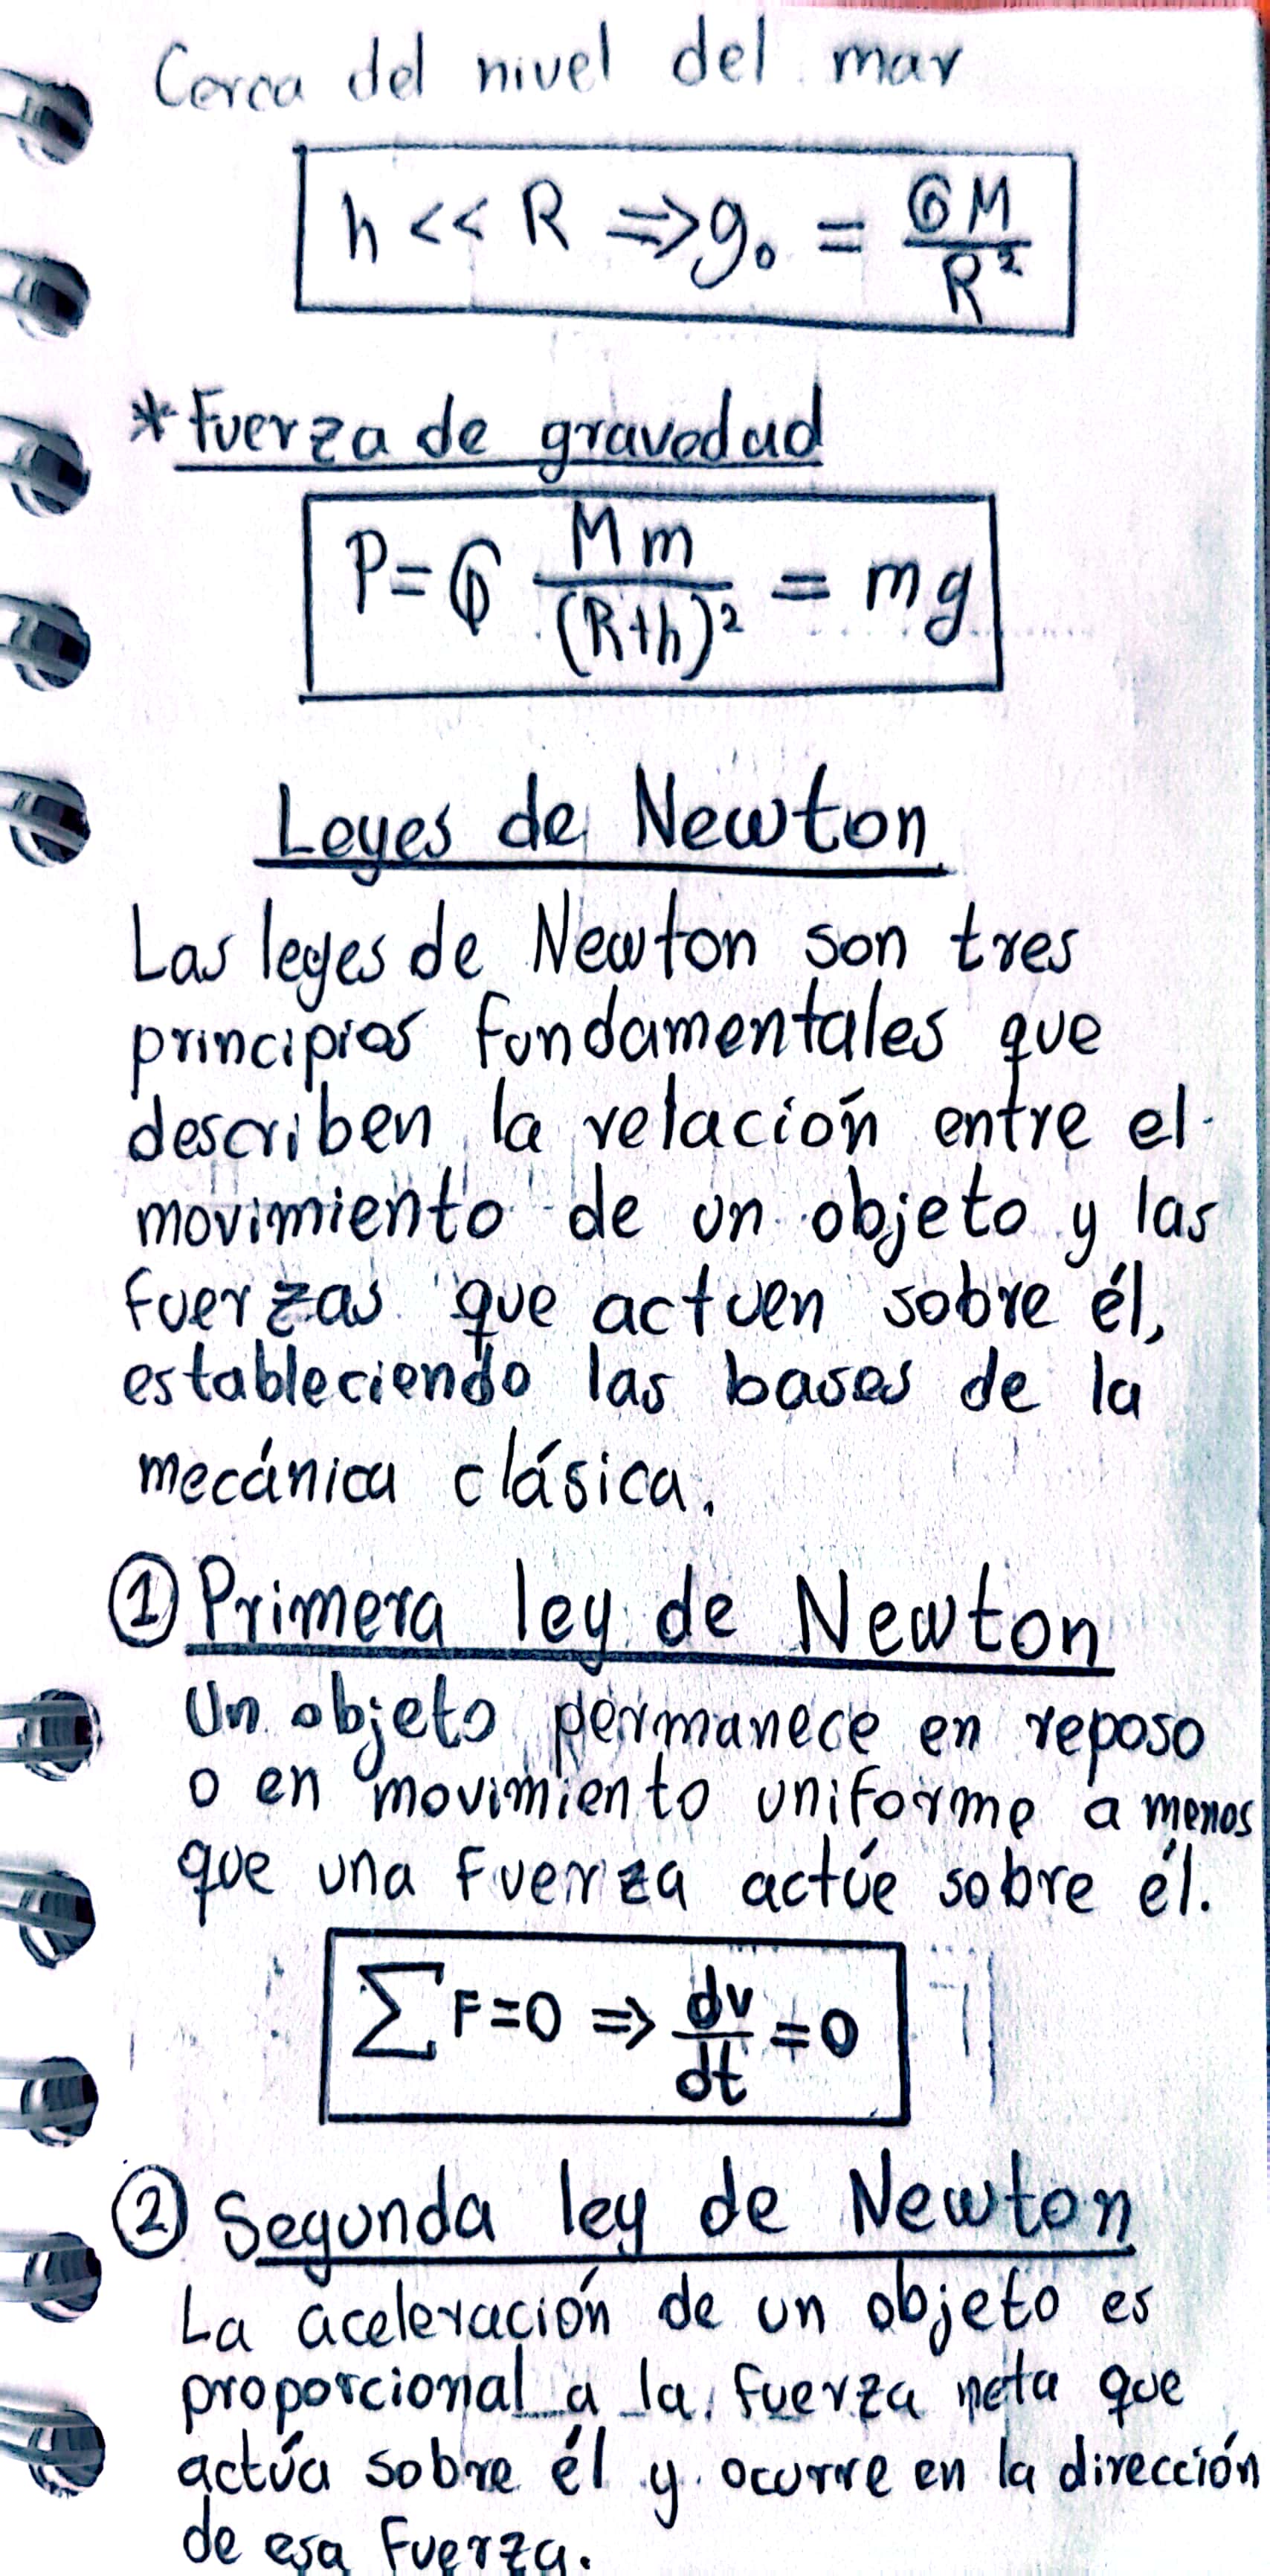 Cerca del nivel del mar
h << R => g₀ = GM/R²
* Fuerza de gravedad
P = G Mm/(R+h)² = mg
Leyes de Newton
Las leyes de Newton son tres
principios fundamentales que
describen la relación entre el
movimiento de un objeto y las
fuerzas que actuen sobre él,
estableciendo las bases de la
mecánica clásica.
① Primera ley de Newton
Un objeto permanece en reposo
o en movimiento uniforme a menos
que una fuerza actúe sobre él.
∑ F=0 => dv/dt = 0
② Segunda ley de Newton
La aceleración de un objeto es
proporcional a la fuerza neta que
actúa sobre él y ocurre en la dirección
de esa fuerza.